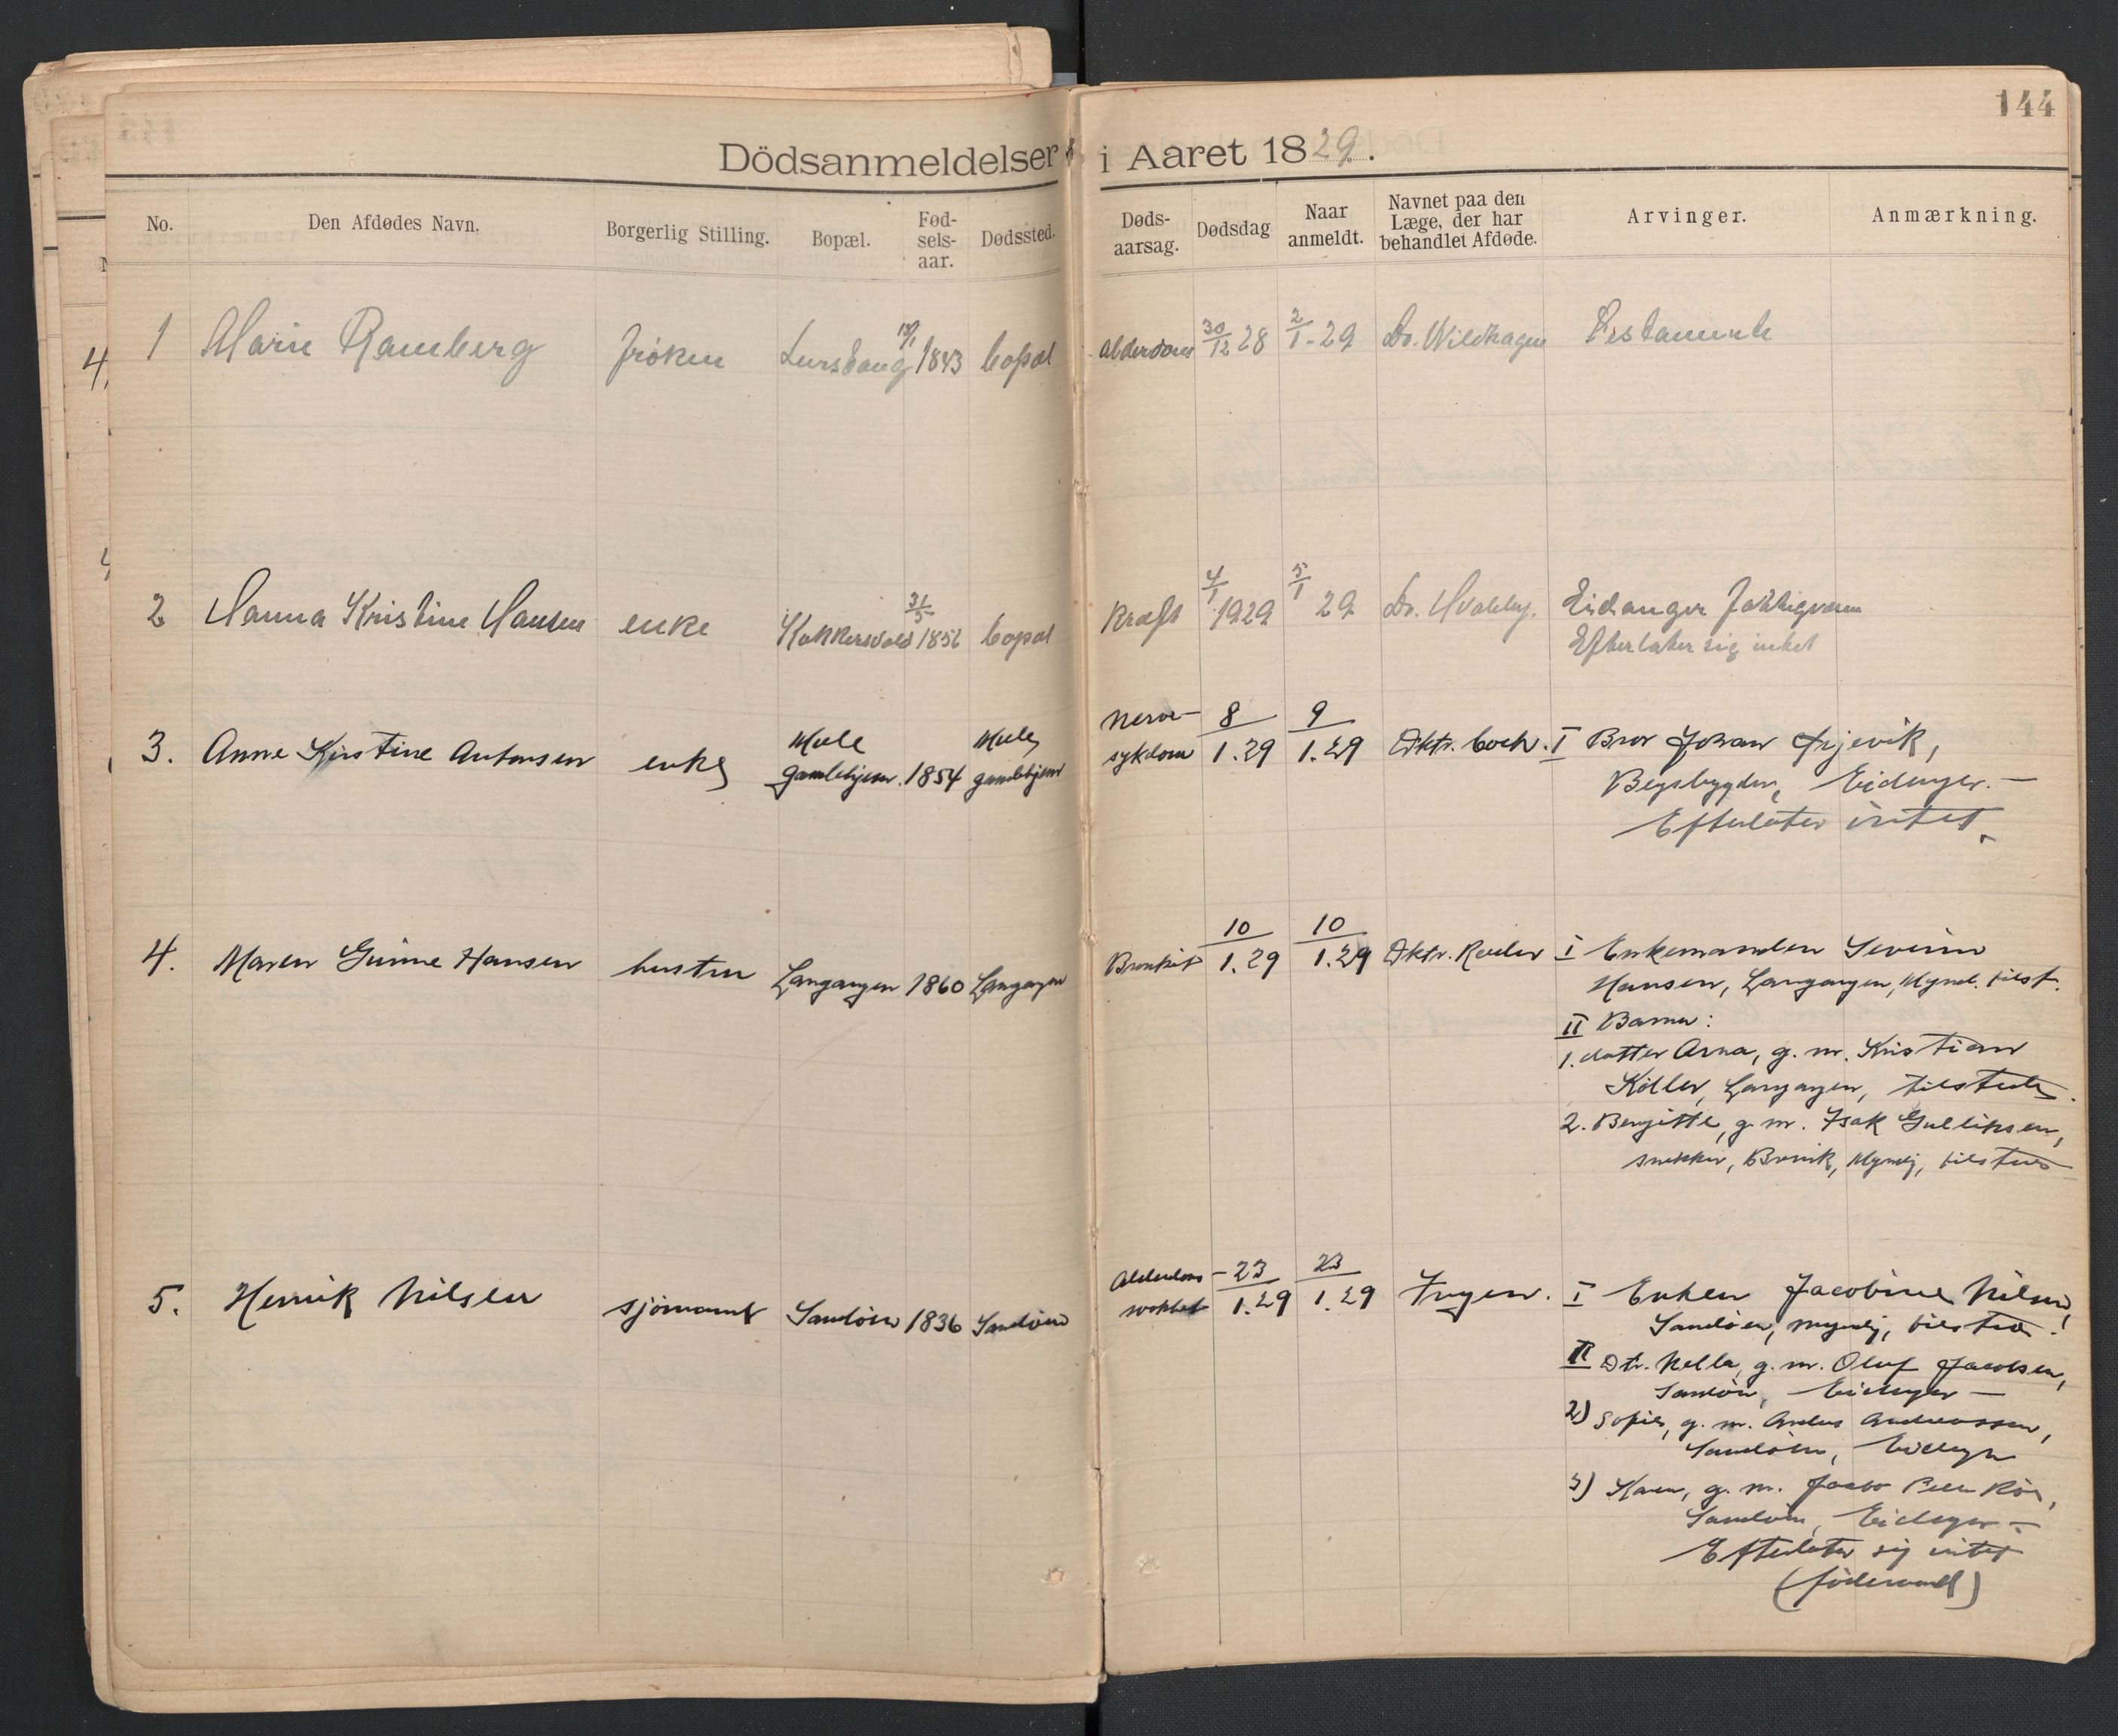 144
Dödsanmeldelser i Aaret 1829.
No. Den Afdødes Navn. Borgerlig Stilling. Bopæl. Fødselsaar. Dødssted. Dødsaarsag. Dødsdag Naar anmeldt. Navnet paa den Læge, der har behandlet Afdøde. Arvinger. Anmærkning.
1 Marie Ramberg frøken 1843 bopæl Alderdoms 30/12 28 2/1-29 Dr. Wildhagen Testamente
2 Hanna Kristine Hansen enke Kokkersvold 31/5 1856 bopæl Kræft 4/1 1929 5/1 29 Dr. Eidanger Fattigvæsen
Efterlater sig intet
3. Anne Kirstine Antonsen enke Mule gamlehjem. 1854 Mule gamlehjem Nervesykdom 8/1.29 9/1.29 Dktr. Coch. I Bror Johan
Eidanger. —
Efterlater intet
4. Maren Gurine Hansen hustru Langangen 1860 Langangen Bronkit 10/1.29 10/1.29 Dktr. I Enkemanden Severin
Hansen, Langangen, Mynd. tilst.
II Barna:
1. datter Anna, g. m. Kristian
Langangen, tilstede.
2. Bergitte, g. m. Isak Gulliksen,
snekker, Brevik, Myndig, tilstede
5. Henrik Nilsen sjömand Sandöen 1836 Sandöen Alderdoms- 23/1.29 23/1.29 Ingen. I Enken Jacobine Nilsen,
Sandöen, myndig, tilstede.
II Dtr. Nella, g. m. Oluf Jacobsen,
Sandöen, Eidanger —
2) Sofie, g. m. Anders Andreassen,
Sandöen, Eidanger
3) Karen, g. m.
Sandöen, Eidanger —
Efterlater sig intet
(föderaad)